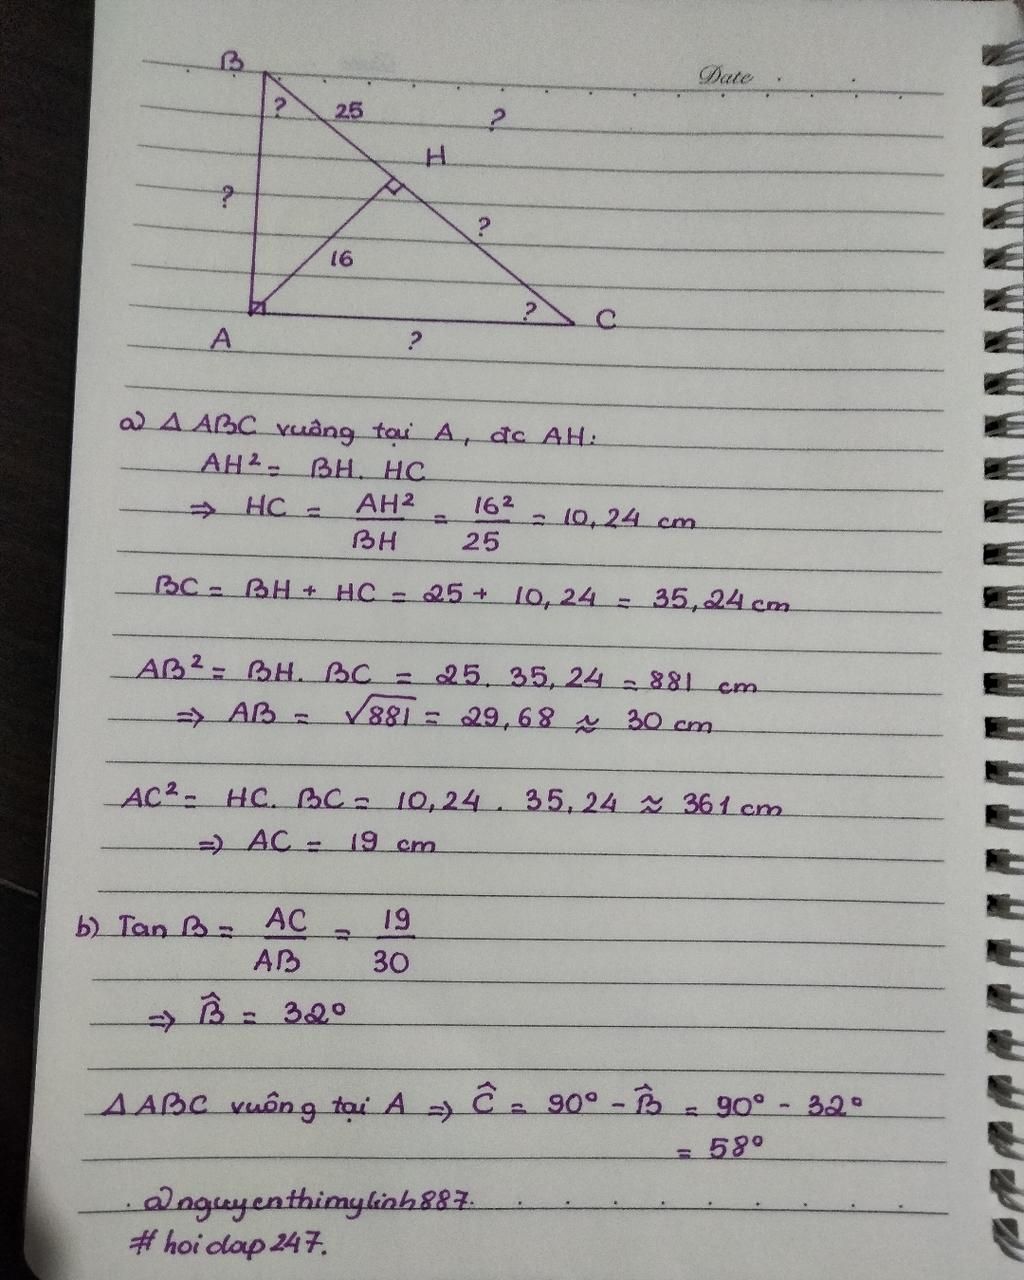 Date
B
?
25
?
H
?
?
16
?
A
?
C
a) Δ ABC vuông tại A, đc AH:
AH² = BH. HC
⇒ HC = AH²/BH = 16²/25 = 10,24 cm
BC = BH + HC = 25 + 10,24 = 35,24 cm
AB² = BH. BC = 25. 35,24 = 881 cm
⇒ AB = √881 = 29,68 ≈ 30 cm
AC² = HC. BC = 10,24 . 35,24 ≈ 361 cm
⇒ AC = 19 cm
b) Tan B = AC/AB = 19/30
⇒ B̂ = 32°
Δ ABC vuông tại A ⇒ Ĉ = 90° - B̂ = 90° - 32°
= 58°
@nguyenthimylinh887.
# hoidap247.